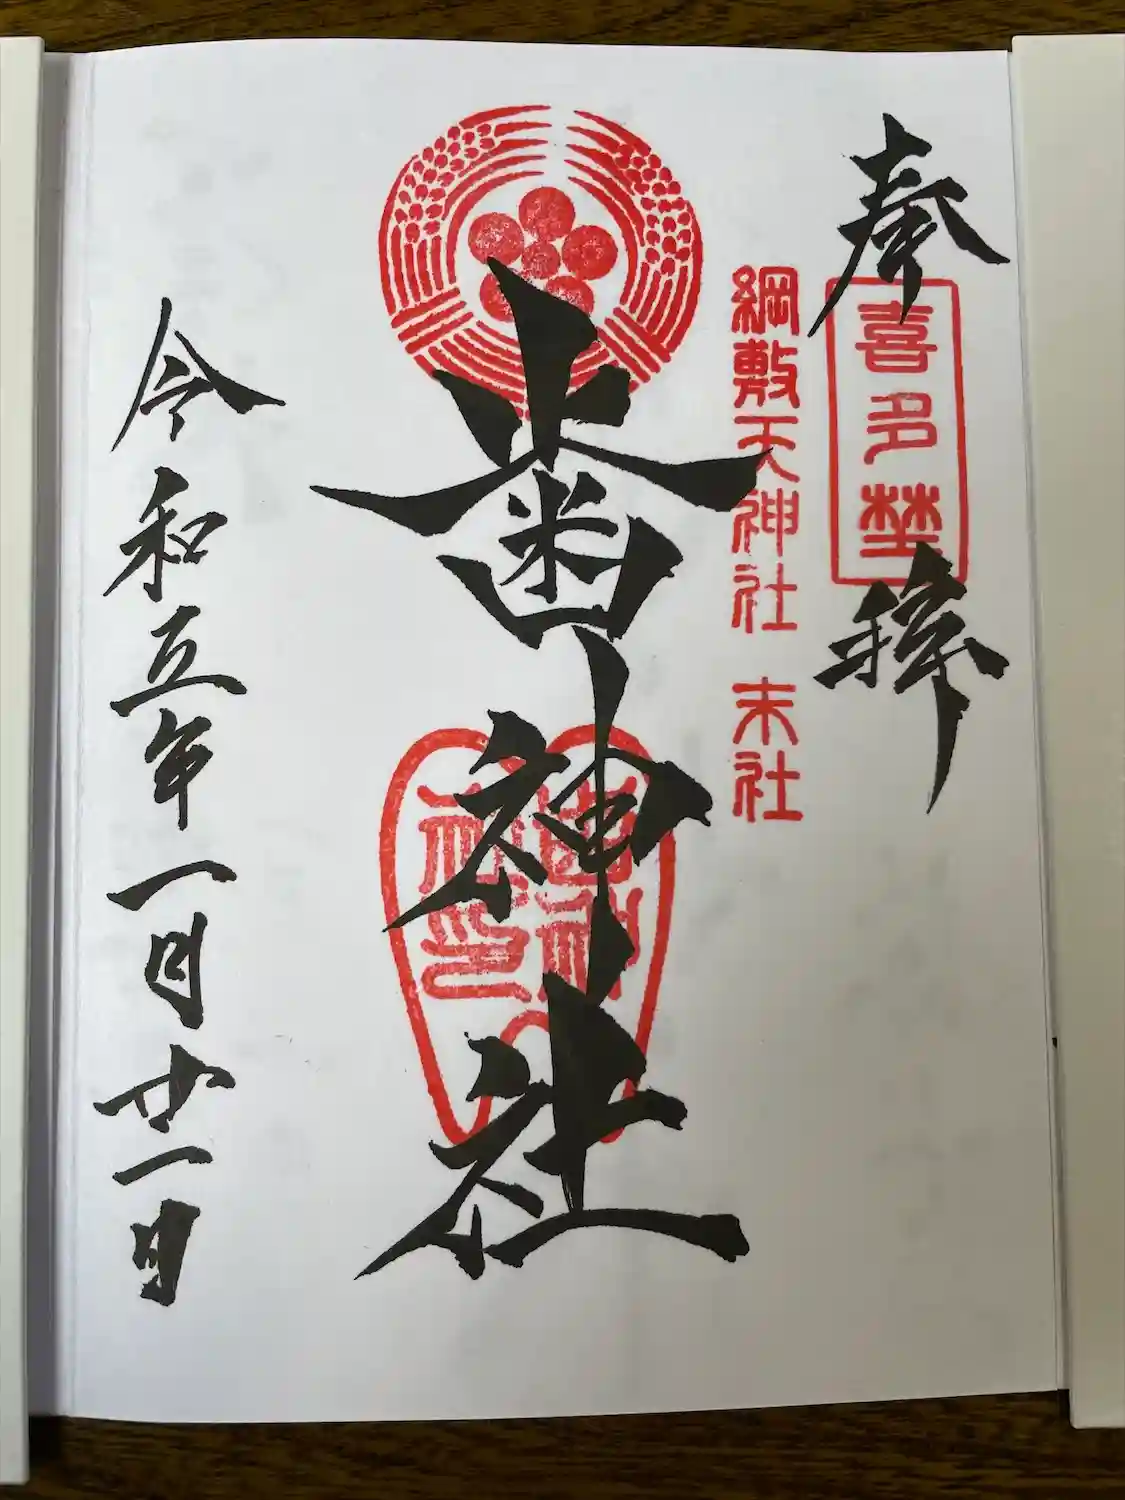 奉拝
喜多埜
綱敷天神社 末社
歯神社
歯神社印
令和五年一月廿一日